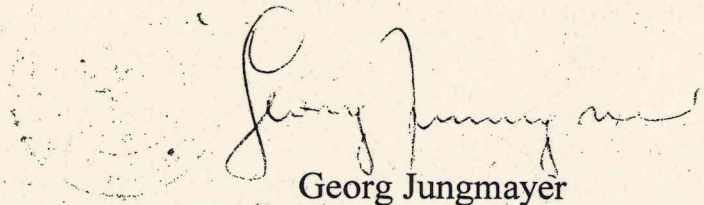 Georg Jungmayer
Georg Jungmayer